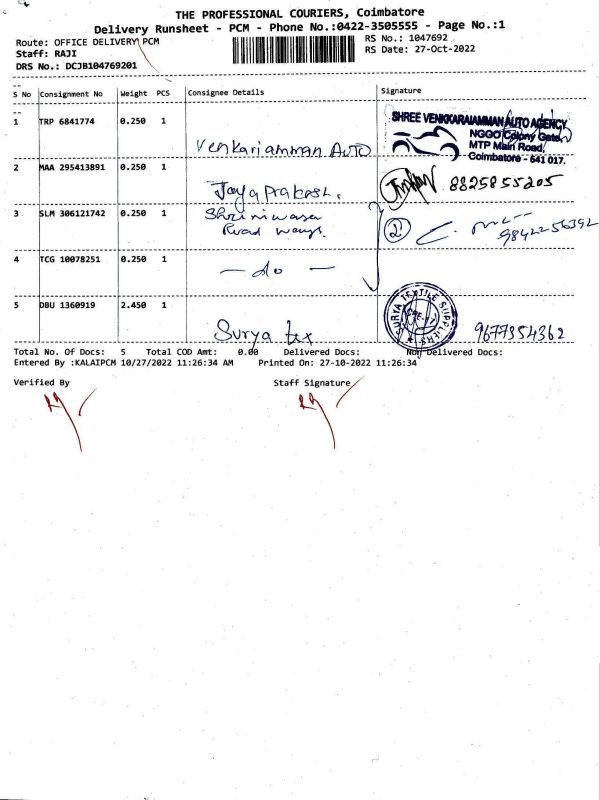 THE PROFESSIONAL COURIERS, Coimbatore
Delivery Runsheet - PCM - Phone No.:0422-3505555 - Page No.:1
Route: OFFICE DELIVERY PCM
RS No.: 1047692
Staff: RAJI
RS Date: 27-Oct-2022
DRS No.: DCJB104769201
S No Consignment No Weight PCS Consignee Details Signature
1 TRP 6841774 0.250 1 Venkariamman Auto
SHREE VENKKARAIAMMAN AUTO AGENCY
NGGO Colony Gate,
MTP Main Road,
Coimbatore - 641 017.
2 MAA 295413891 0.250 1 Jayaprakash. 8825855205
3 SLM 306121742 0.250 1 Shriniwasa
Road ways. 2 9842256392
4 TCG 10078251 0.250 1 - do -
5 DBU 1360919 2.450 1 Surya tex
SURYA TEXTILE SUPPLIERS
CBE-17
9677354362
Total No. Of Docs: 5 Total COD Amt: 0.00 Delivered Docs: Not Delivered Docs:
Entered By :KALAIPCM 10/27/2022 11:26:34 AM Printed On: 27-10-2022 11:26:34
Verified By Staff Signature